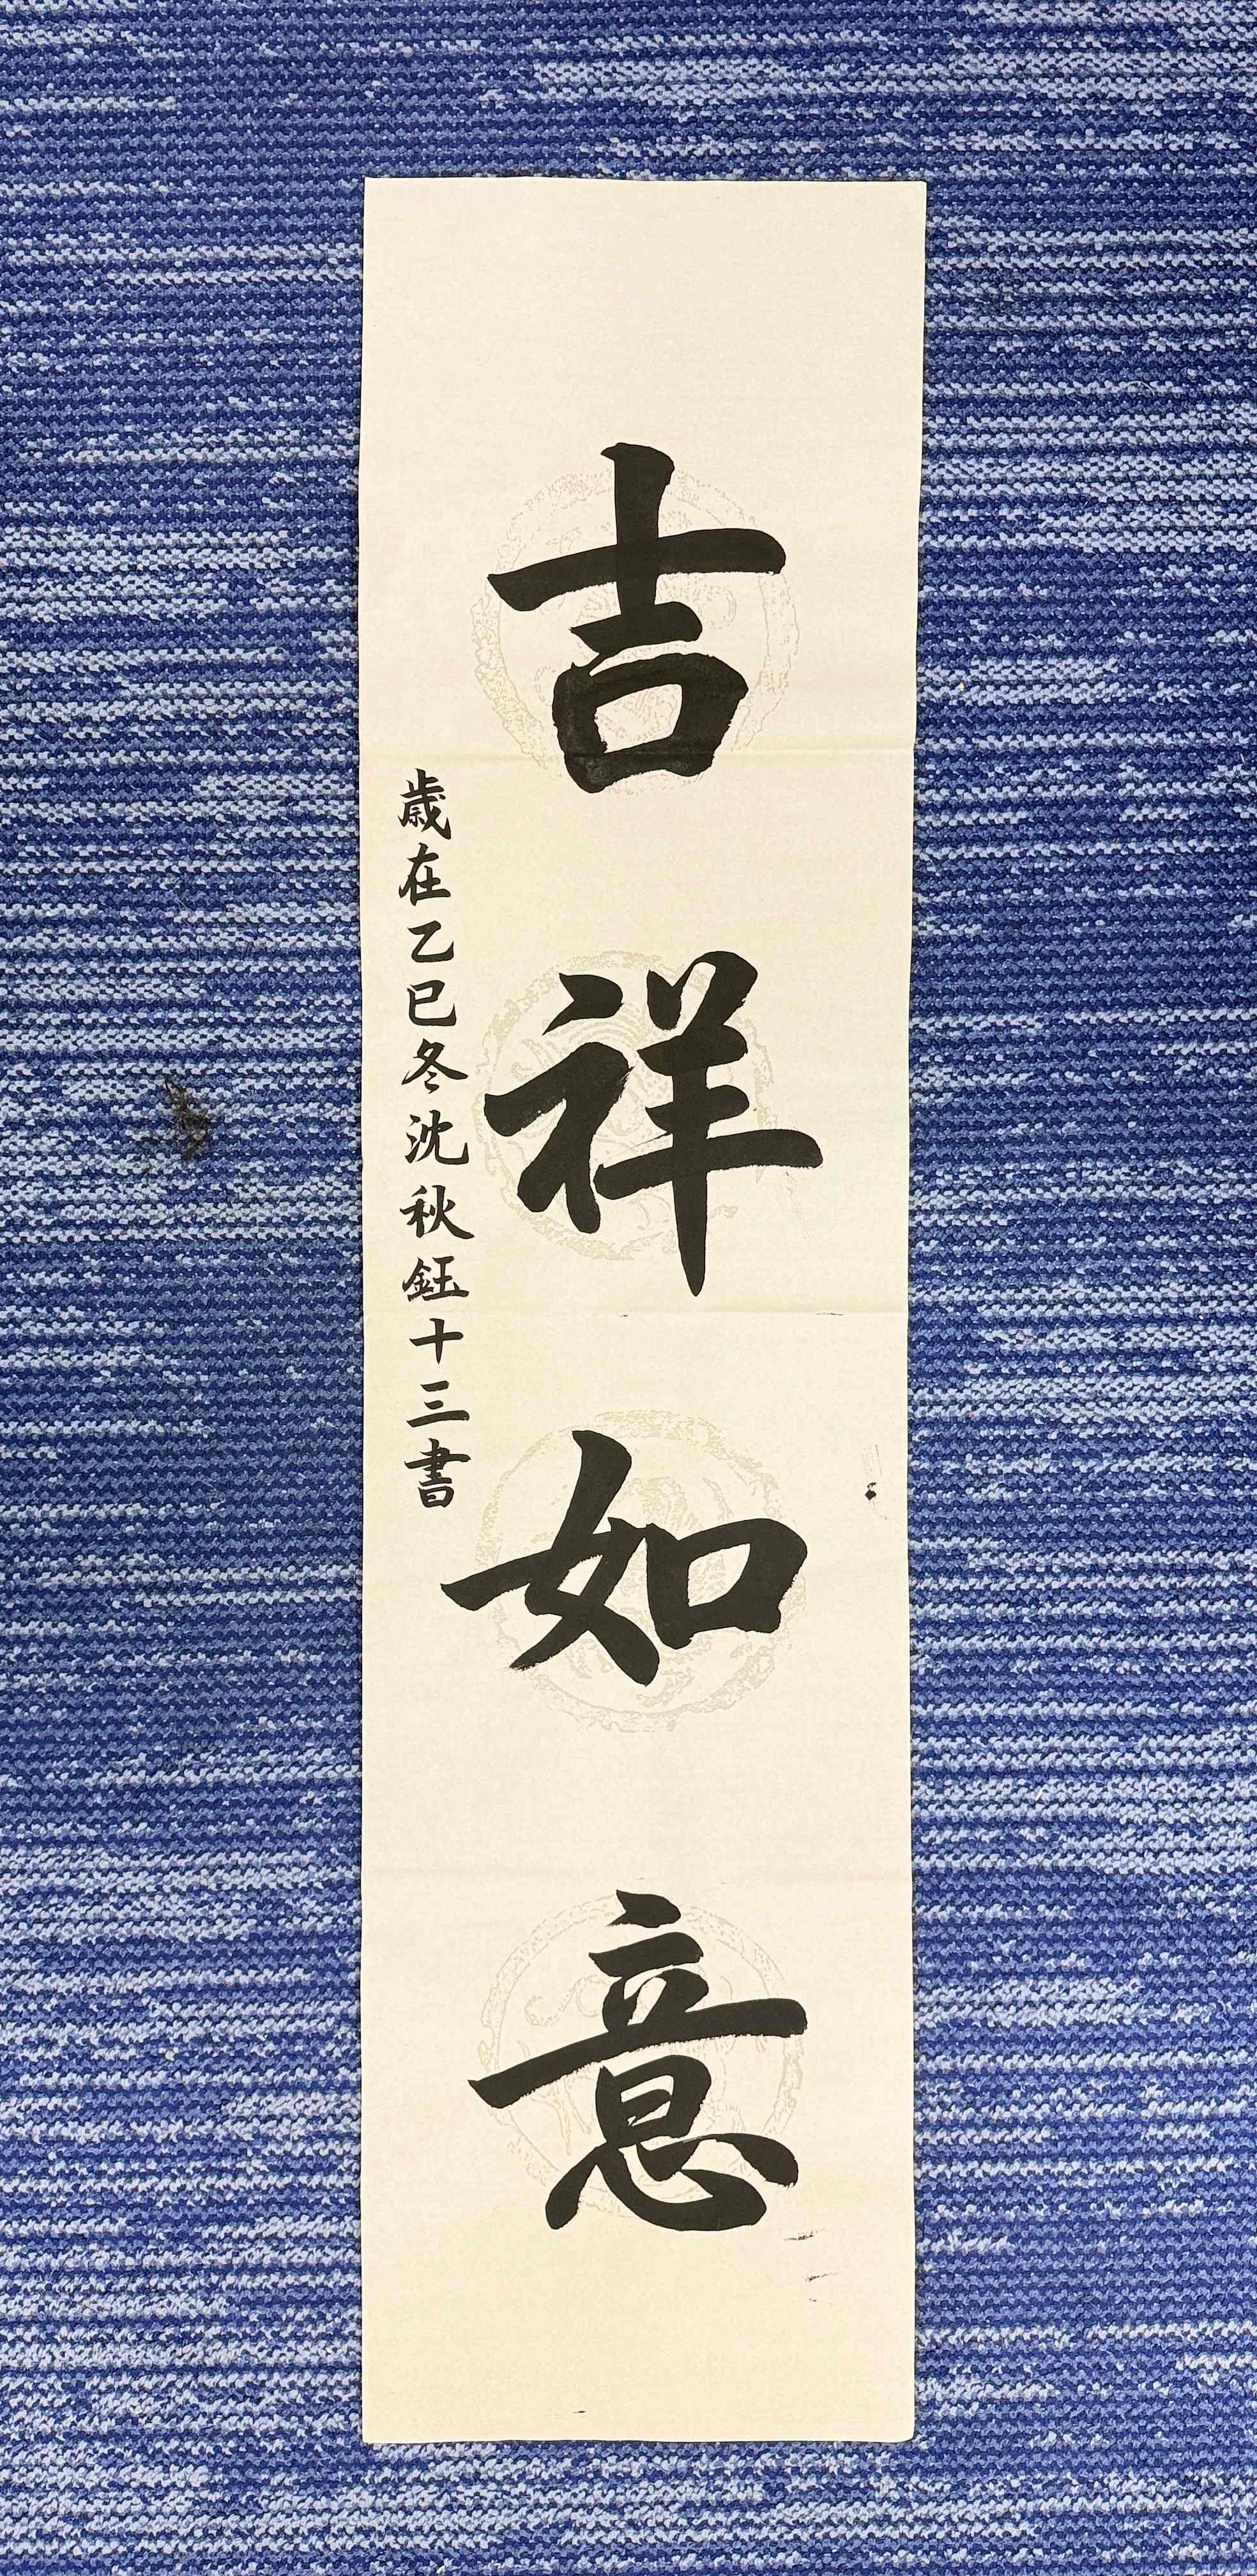 吉祥如意
歳在乙巳冬沈秋鈺十三書